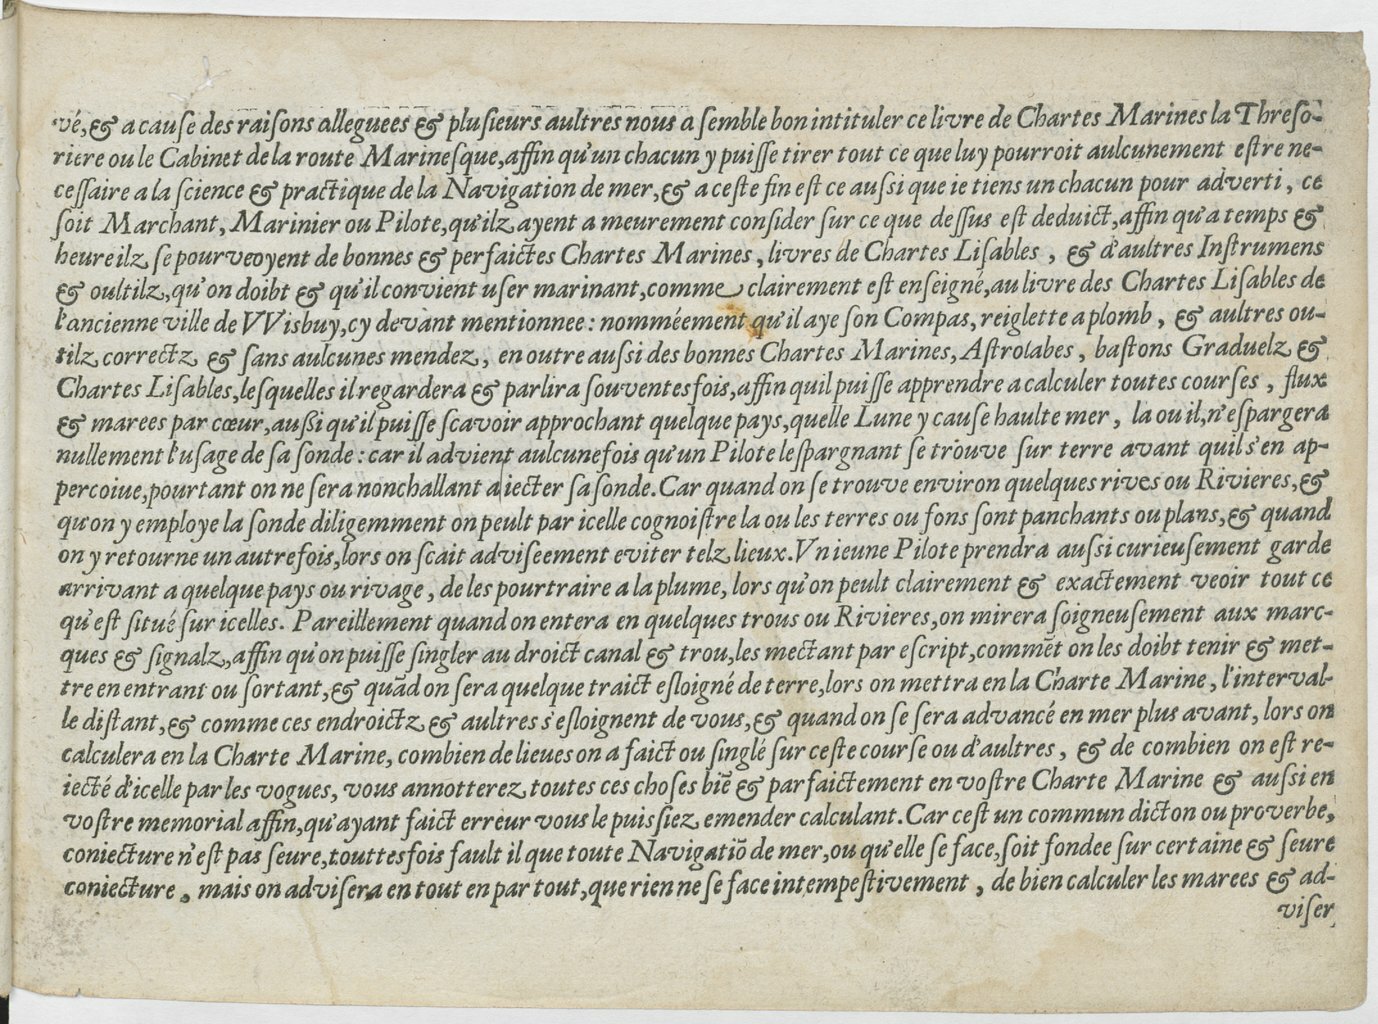 vé, & a cause des raisons alleguees & plusieurs aultres nous a semble bon intituler ce livre de Chartes Marines la Threso-
riere ou le Cabinet de la route Marinesque, affin qu'un chacun y puisse tirer tout ce que luy pourroit aulcunement estre ne-
cessaire a la science & practique de la Navigation de mer, & a ceste fin est ce aussi que ie tiens un chacun pour adverti, ce
soit Marchant, Marinier ou Pilote, qu'ilz ayent a meurement consider sur ce que dessus est deduict, affin qu'a temps &
heure ilz se pourveoyent de bonnes & perfaictes Chartes Marines, livres de Chartes Lisables, & d'aultres Instrumens
& oultilz, qu'on doibt & qu'il convient user marinant, comme clairement est enseigné, au livre des Chartes Lisables de
l'ancienne ville de VVisbuy, cy devant mentionnee: nomméement qu'il aye son Compas, reiglette a plomb, & aultres ou-
tilz, correctz & sans aulcunes mendez, en outre aussi des bonnes Chartes Marines, Astrolabes, bastons Graduelz &
Chartes Lisables, lesquelles il regardera & parlira souventesfois, affin quil puisse apprendre a calculer toutes courses, flux
& marees par cœur, aussi qu'il puisse scavoir approchant quelque pays, quelle Lune y cause haulte mer, la ou il, n'espargera
nullement l'usage de sa sonde: car il advient aulcunefois qu'un Pilote lespargnant se trouve sur terre avant quil s'en ap-
percoiue, pourtant on ne sera nonchallant a iecter sa sonde. Car quand on se trouve environ quelques rives ou Rivieres, &
qu'on y employe la sonde diligemment on peult par icelle cognoistre la ou les terres ou fons sont panchants ou plans, & quand
on y retourne un autrefois, lors on scait adviseement eviter telz lieux. Vn ieune Pilote prendra aussi curieusement garde
arrivant a quelque pays ou rivage, de les pourtraire a la plume, lors qu'on peult clairement & exactement veoir tout ce
qu'est situé sur icelles. Pareillement quand on entera en quelques trous ou Rivieres, on mirera soigneusement aux marc-
ques & signalz, affin qu'on puisse singler au droict canal & trou, les mectant par escript, commēt on les doibt tenir & met-
tre en entrant ou sortant, & quād on sera quelque traict esloigné de terre, lors on mettra en la Charte Marine, l'interval-
le distant, & comme ces endroictz & aultres s'esloignent de vous, & quand on se sera advancé en mer plus avant, lors on
calculera en la Charte Marine, combien de lieues on a faict ou singlé sur ceste course ou d'aultres, & de combien on est re-
iecté d'icelle par les vogues, vous annotterez toutes ces choses biē & parfaictement en vostre Charte Marine & aussi en
vostre memorial affin, qu'ayant faict erreur vous le puissiez emender calculant. Car cest un commun dicton ou proverbe,
coniecture n'est pas seure, touttesfois fault il que toute Navigatiō de mer, ou qu'elle se face, soit fondee sur certaine & seure
coniecture, mais on advisera en tout en par tout, que rien ne se face intempestivement, de bien calculer les marees & ad-
viser